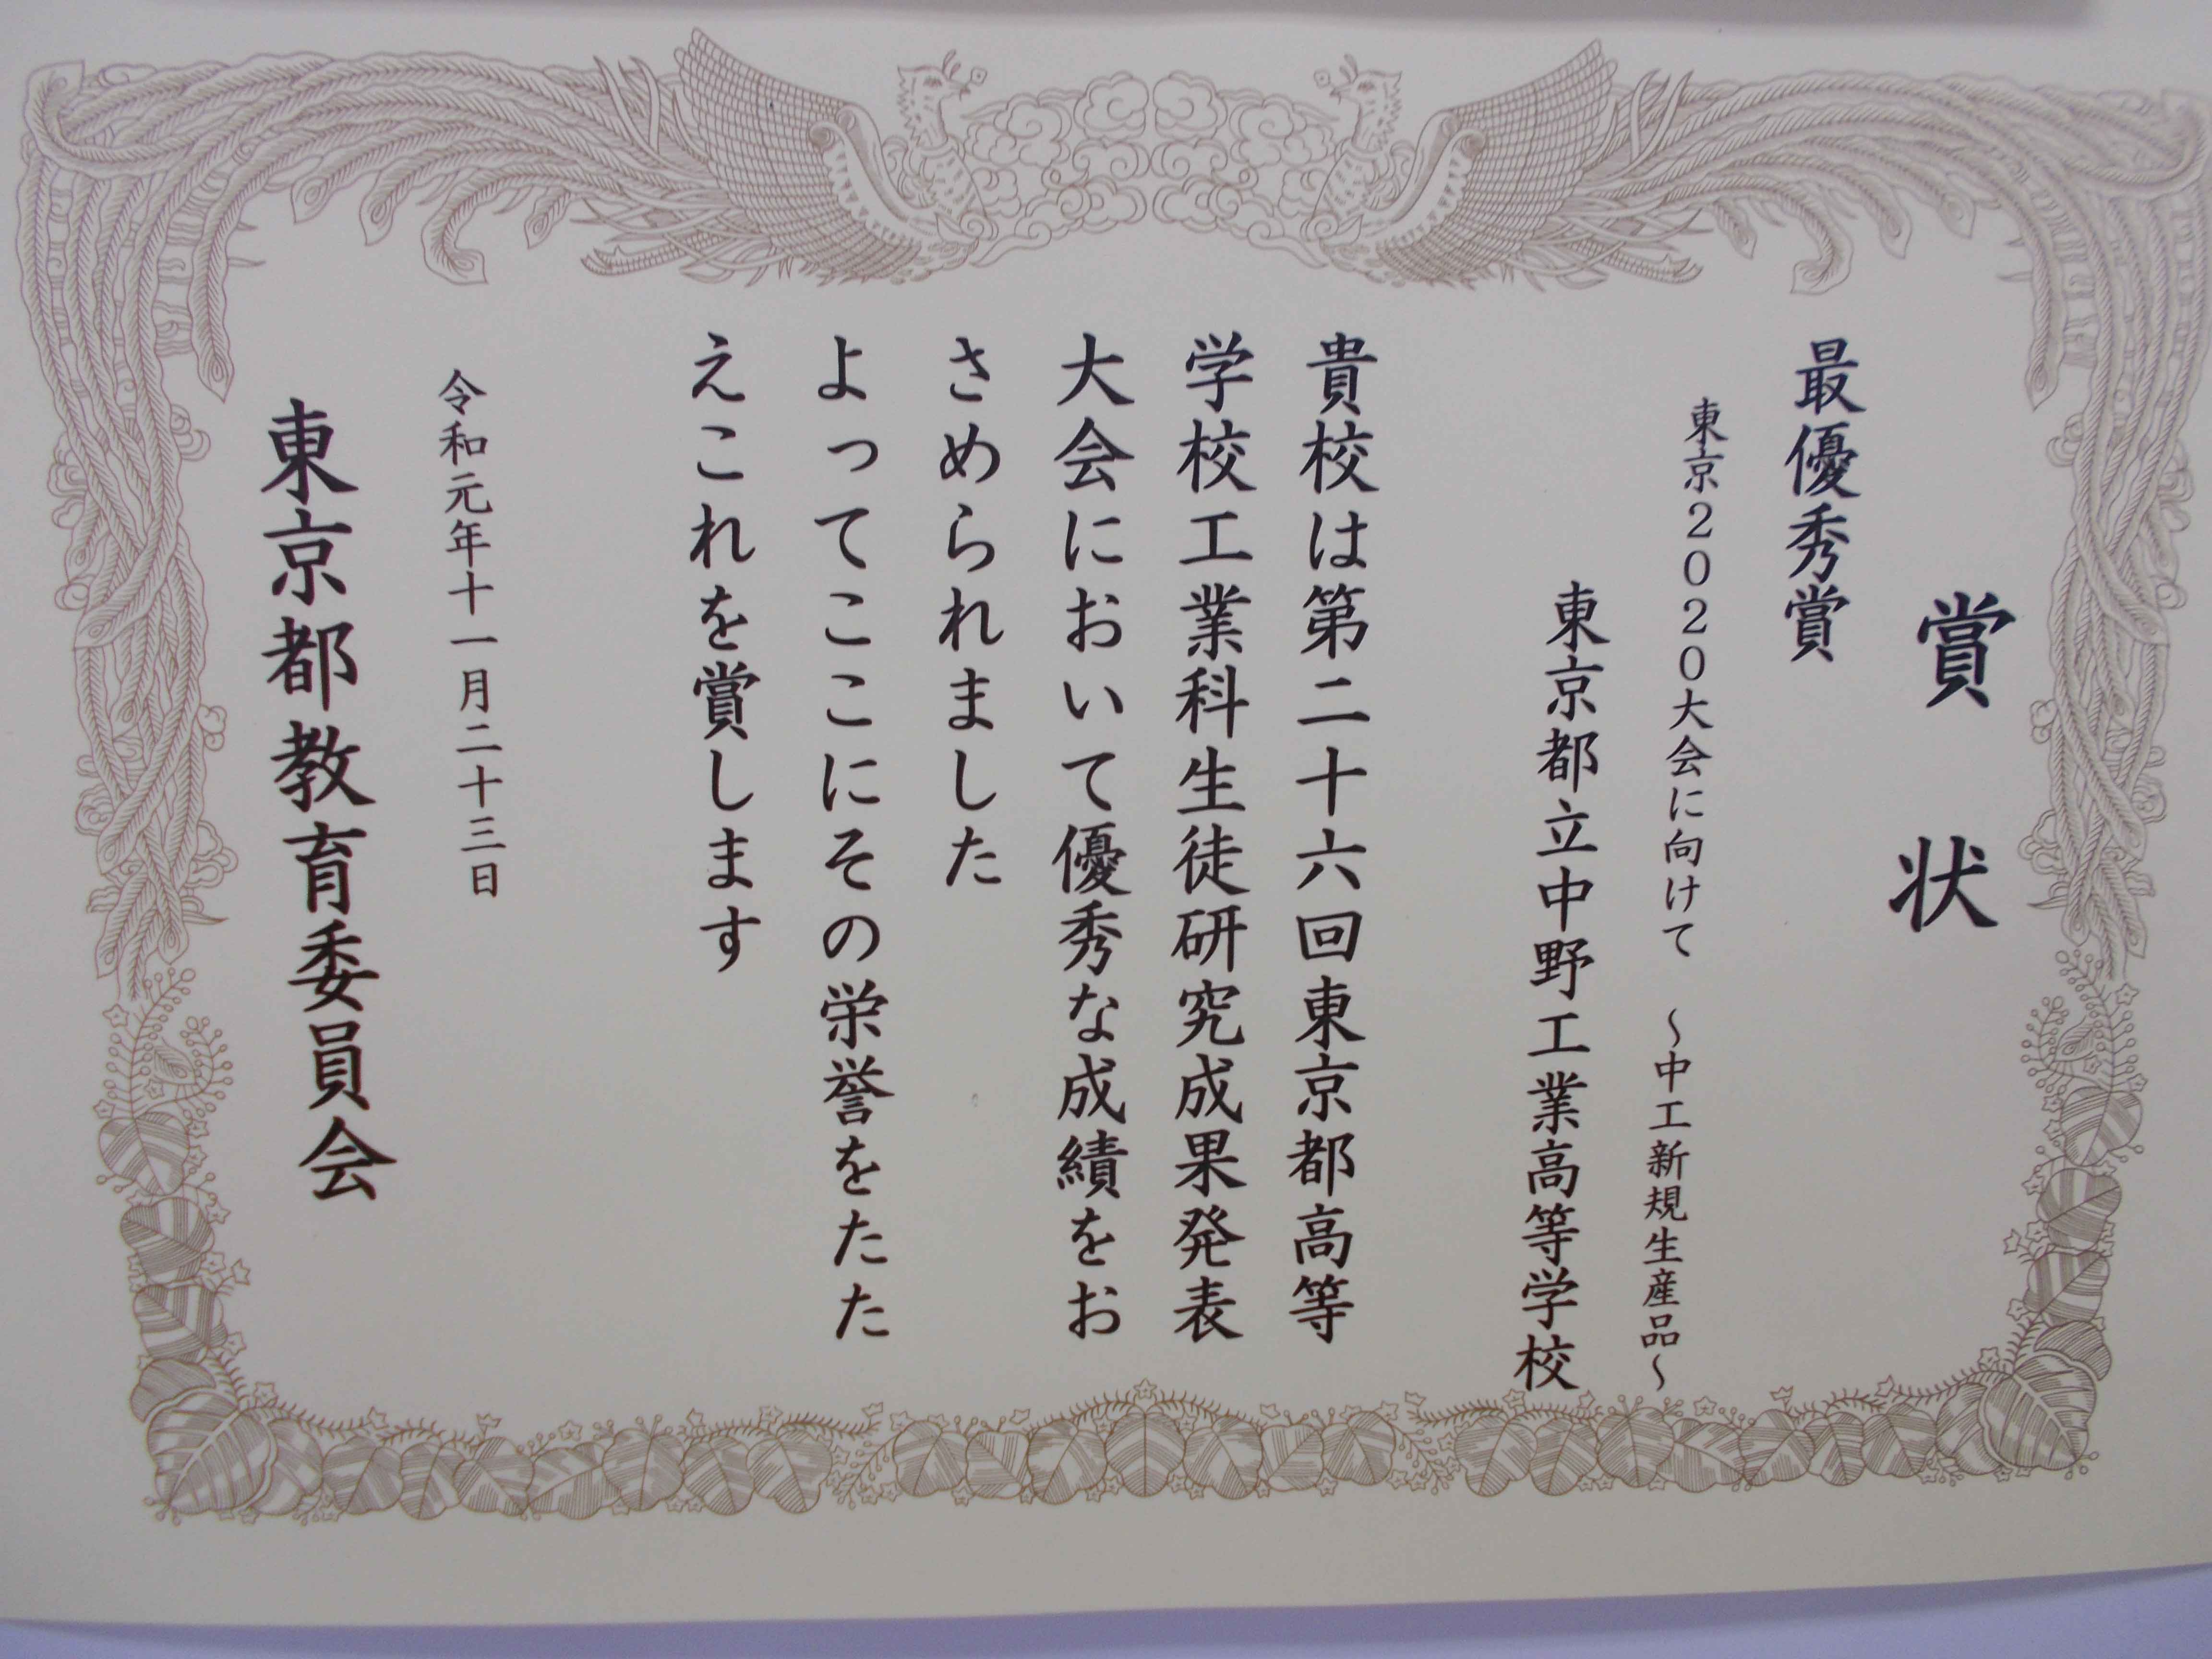 賞状
最優秀賞
東京２０２０大会に向けて　～中工新規生産品～
東京都立中野工業高等学校
貴校は第二十六回東京都高等
学校工業科生徒研究成果発表
大会において優秀な成績をお
さめられました
よってここにその栄誉をたた
えこれを賞します
令和元年十一月二十三日
東京都教育委員会